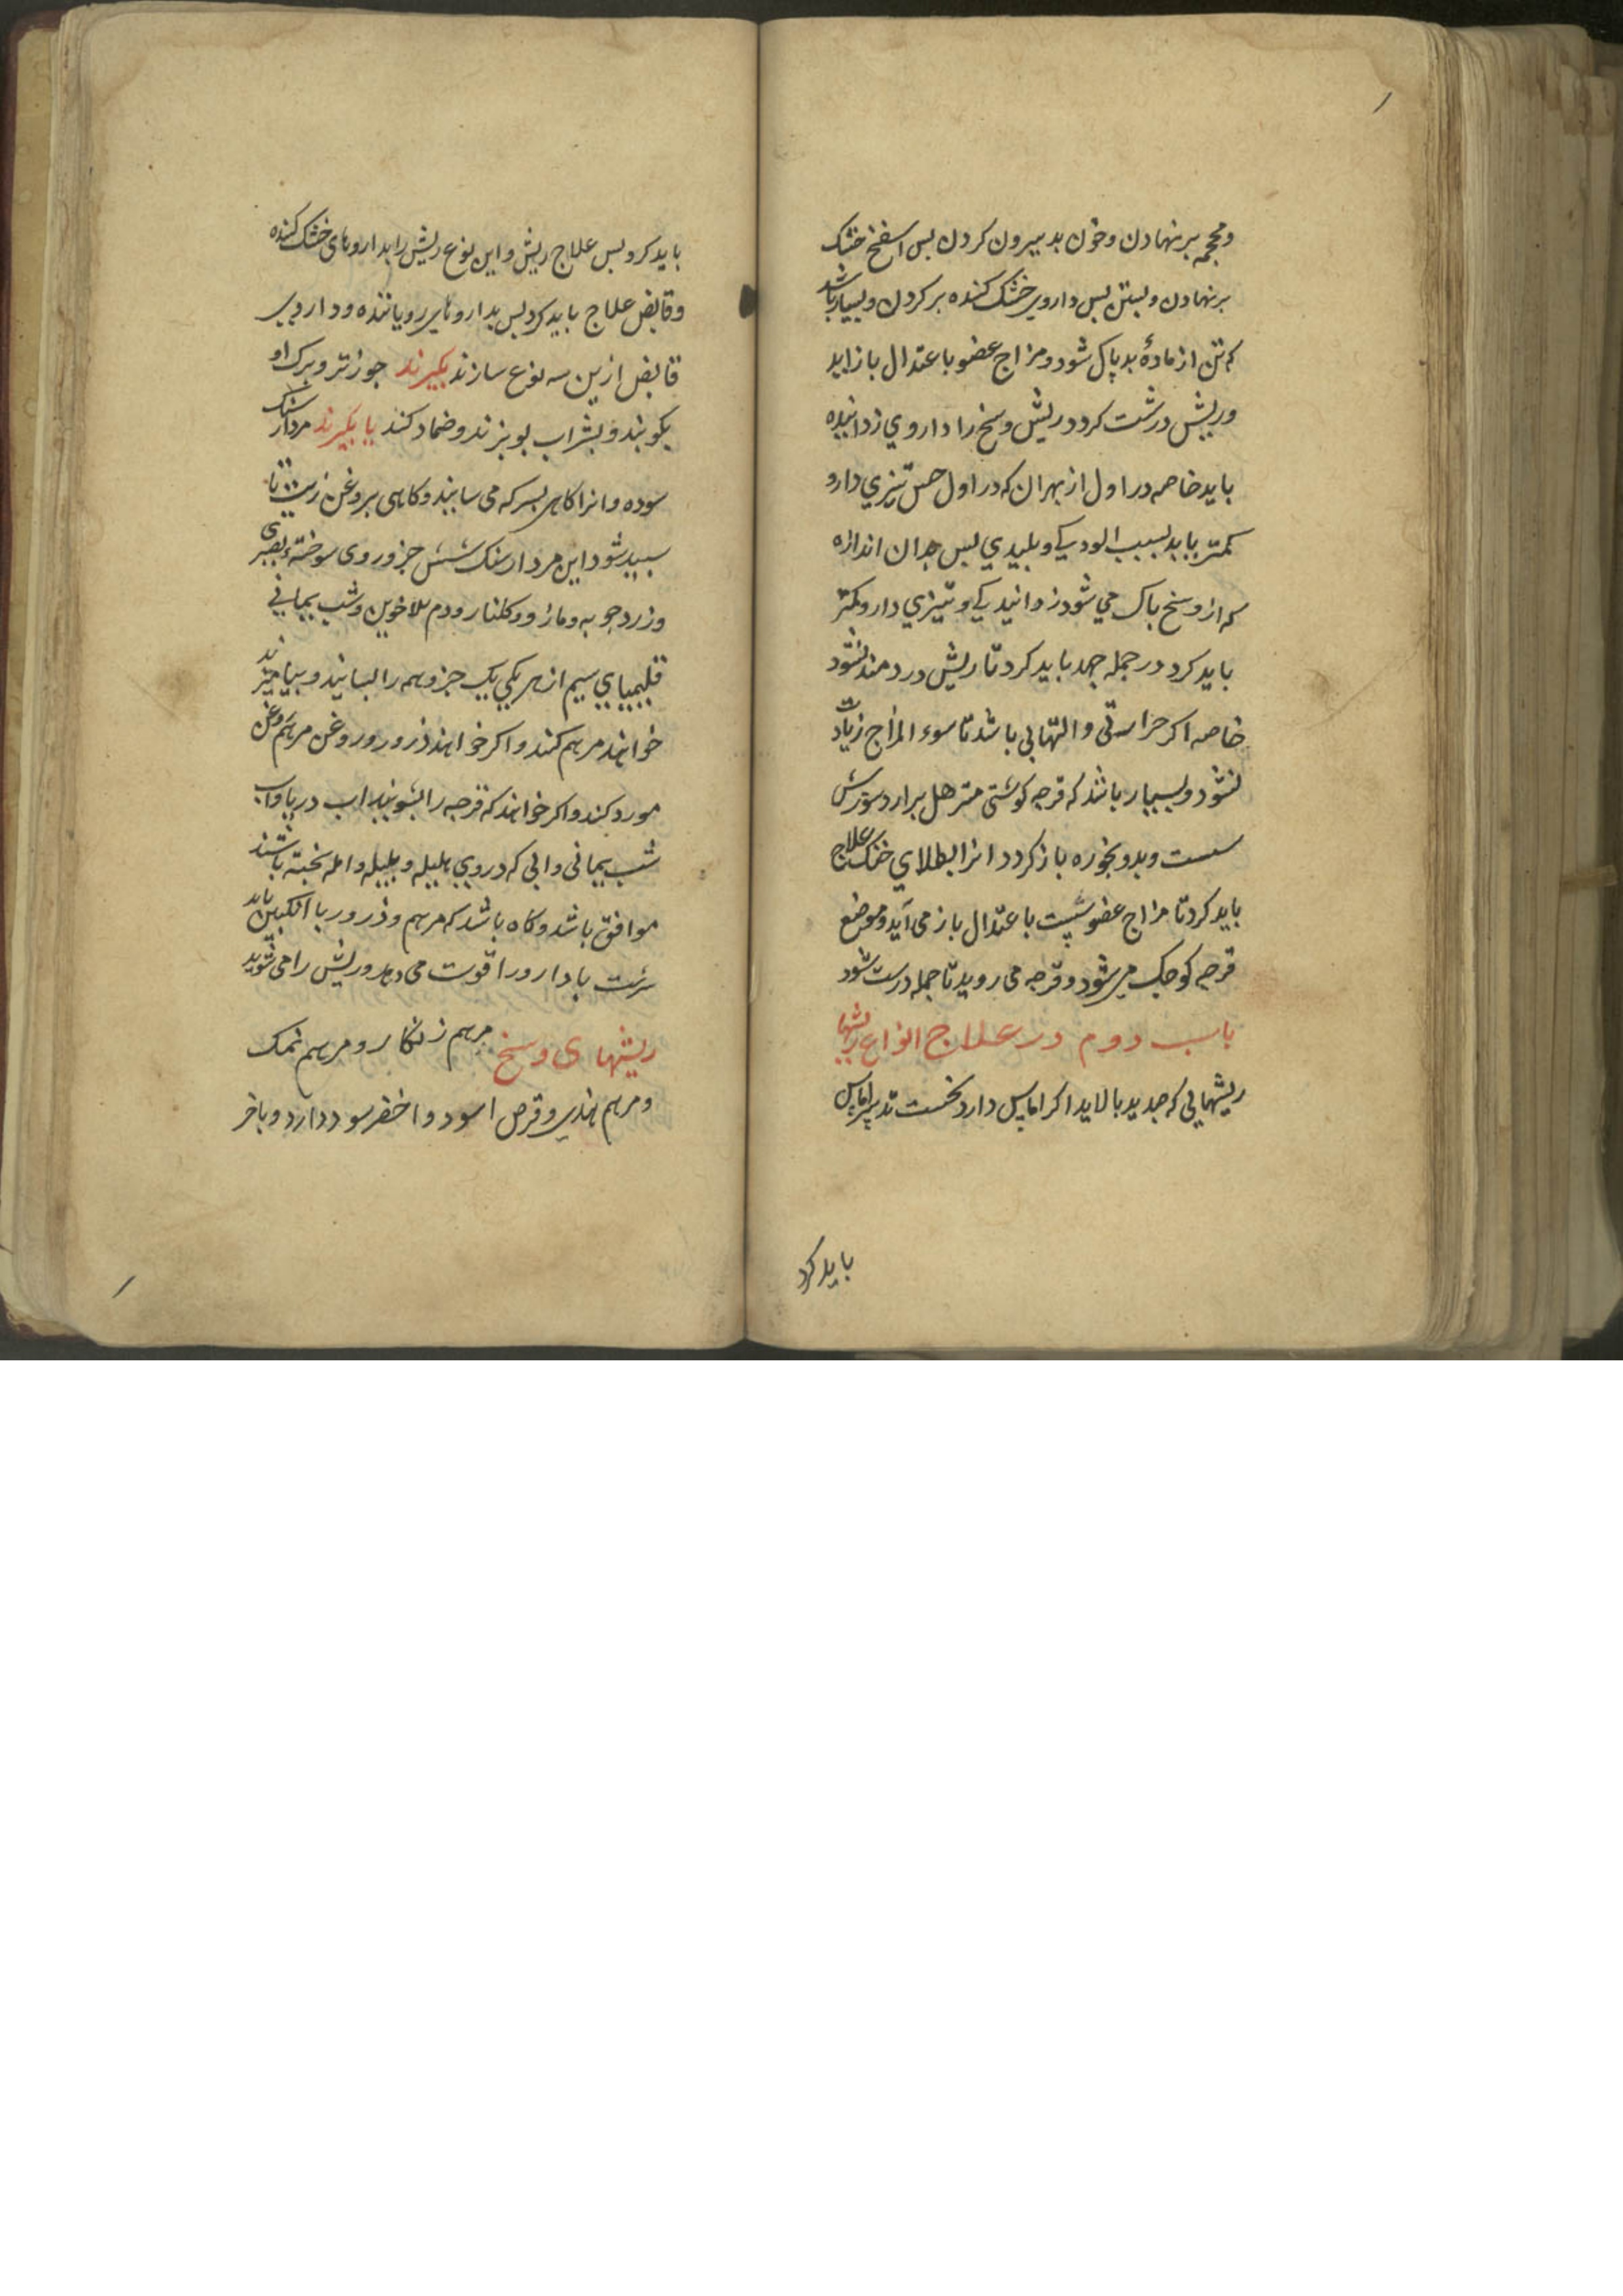 ومحجمه برنهادن وخون بد بیرون کردن بس اسفنج خشک
برنهادن وبستن بس داروی خشک کننده برکردن وبسیار باشد
که تن از مادۀ بد پاک شود ومزاج عضو باعتدال باز اید
وریش درشت کردد ریش وسخ را داروی زداینده
باید خاصه در اول از بهر ان که در اول حس تیزی دارو
کمتر یابد بسبب الودیکی وبلیدی بس بدان اندازه
که از وسخ باک می شود زدانیدیکی وتیزی دارو کمتر
باید کرد در جمله جهد باید کرد تا ریش دردمند نشود
خاصه اکر حراستی والتهابی باشد تا سوء المزاج زیادت
نشود وبسیار باشد که قرحه کوشتی مترهل برارد سوزش
سست وبدو بخوره باز کردد انرا بطلای خنک علاج
باید کرد تا مزاج عضو سبت باعتدال باز می آید وموضع
قرحه کوجک می شود وقرحه می روید تا جمله درست شود
باب دوم در علاج انواع ریشها
ریشهایی که جدید بالاید اکر اماس دارد نخست تدبیر اماس
باید کرد
باید کرد وبس علاج ریش واین نوع ریش را بداروهای خشک کننده
وقابض علاج باید کرد بس بداروهای رویاننده وداروی
قابض ازین سه نوع سازند بکیرند جوز تر وبرک او
بکوبند وبشراب بوبزند وضماد کنند یا بکیرند مردارسنک
سوده وانرا کاهی بسرکه می سایند وکاهی بروغن زیت تا
سبید شود این مردارسنک شش جزو روی سوخته بصبری
وزردجوبه ومازو وکلنار ودم الاخوین وشب یمانی
قلیمیای سیم از هر یکی یک جزو همه را بسایند وبیامیزند
خواهند مرهم کنند واکر خواهند ذرور وروغن مرهم روغن
مورد کنند واکر خواهند که قرحه را بشویند اب دریا واب
شب یمانی وابی که دروی هلیله وبلیله وامله بخته باشند
موافق باشد وکاه باشد که مرهم وذرور با انکبین باید
سرشت تا دارو را قوت می دهد وریش را می شوید
ریشهای وسخ مرهم زنکار ومرهم نمک
ومرهم هندی وقرص اسود واخضر سود دارد وباخر